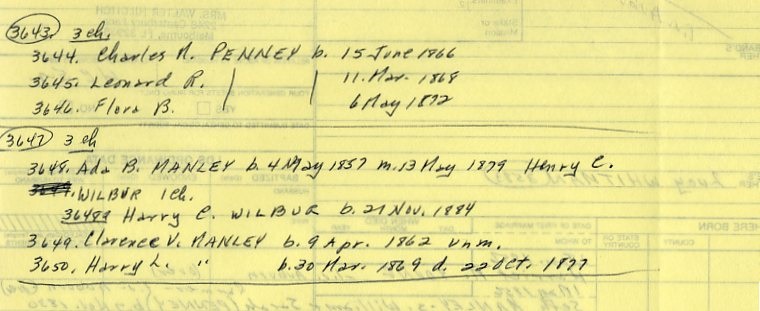 3643. 3 ch.
3644. Charles M. PENNEY b. 15 June 1866
3645. Leonard R. 11. Mar. 1868
3646. Flora B. 6 May 1872
3647 3 ch
3648. Ada B. MANLEY b. 4 May 1857 m. 13 May 1879 Henry C.
WILBUR 1 ch.
3648a Harry C. WILBUR b. 21 Nov. 1884
3649. Clarence V. MANLEY b. 9 Apr. 1862 unm.
3650. Harry L. " b. 30 Mar. 1869 d. 22 Oct. 1877